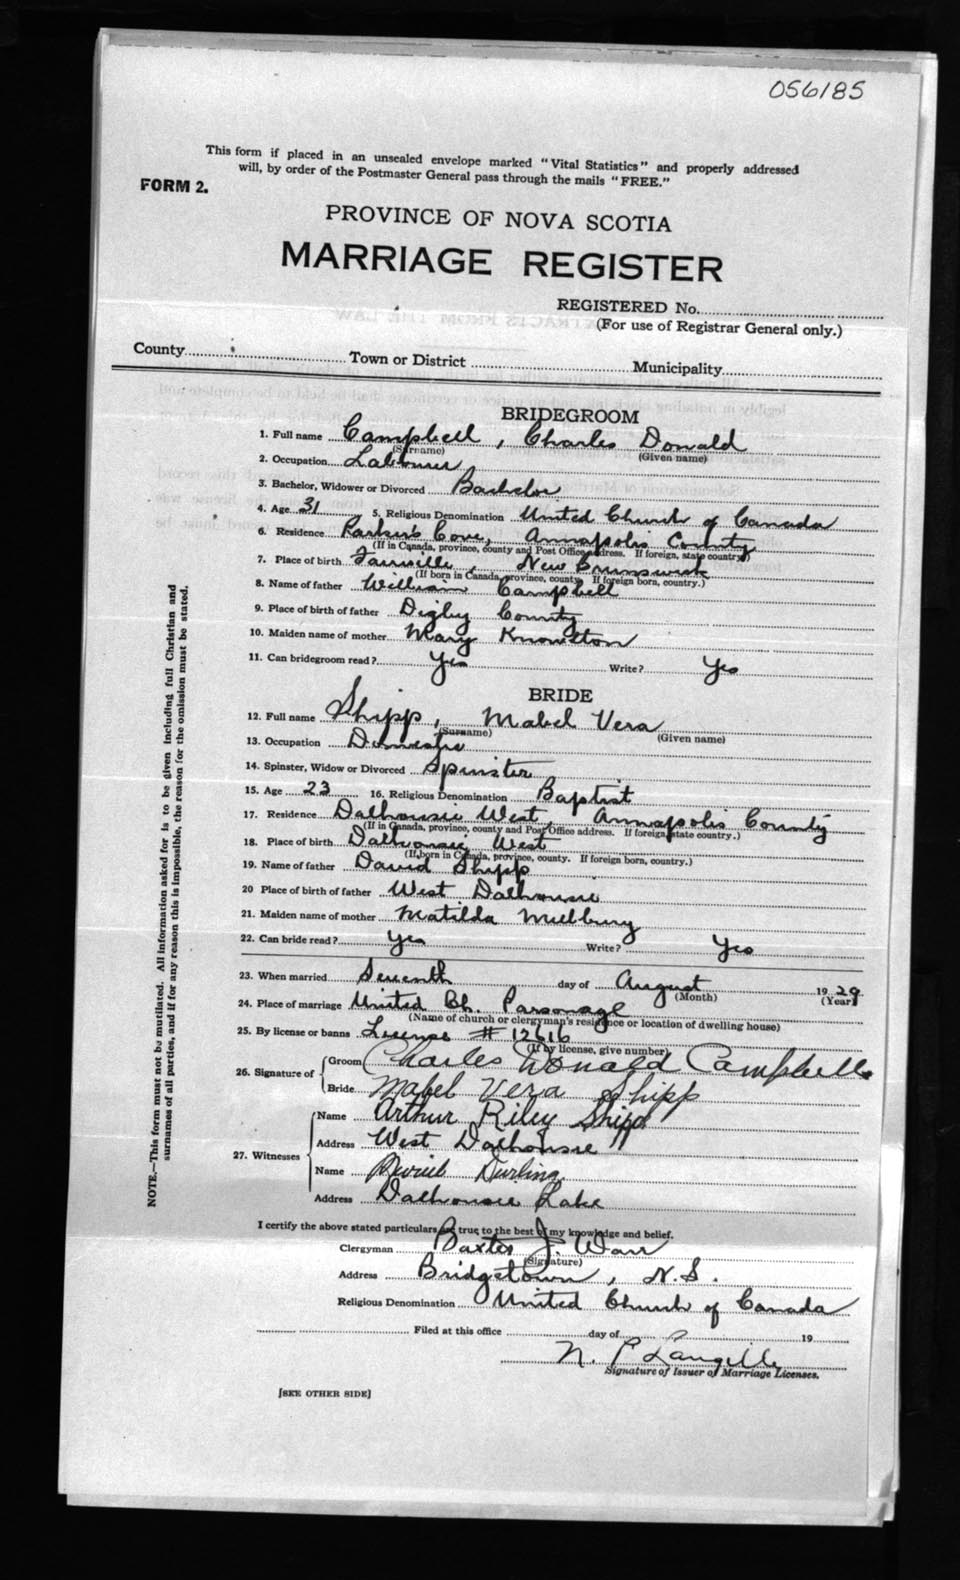 056185
This form if placed in an unsealed envelope marked "Vital Statistics" and properly addressed
will, by order of the Postmaster General pass through the mails "FREE."
FORM 2.
PROVINCE OF NOVA SCOTIA
MARRIAGE REGISTER
REGISTERED No.
(For use of Registrar General only.)
County Town or District Municipality
BRIDEGROOM
1. Full name Campbell, Charles Donald
(Surname) (Given name)
2. Occupation Labourer
3. Bachelor, Widower or Divorced Bachelor
4. Age 31 5. Religious Denomination United Church of Canada
6. Residence Parker's Cove, Annapolis County
(If in Canada, province, county and Post Office address. If foreign, state country.)
7. Place of birth Fairville, New Brunswick
(If born in Canada, province, county. If foreign born, country.)
8. Name of father William Campbell
9. Place of birth of father Digby County
10. Maiden name of mother Mary Knowlton
11. Can bridegroom read? Yes Write? Yes
BRIDE
12. Full name Shipp, Mabel Vera
(Surname) (Given name)
13. Occupation Domestic
14. Spinster, Widow or Divorced Spinster
15. Age 23 16. Religious Denomination Baptist
17. Residence Dalhousie West, Annapolis County
(If in Canada, province, county and Post Office address. If foreign, state country.)
18. Place of birth Dalhousie West
(If born in Canada, province, county. If foreign born, country.)
19. Name of father David Shipp
20 Place of birth of father West Dalhousie
21. Maiden name of mother Matilda
22. Can bride read? Yes Write? Yes
23. When married Seventh day of August 1929
(Month) (Year)
24. Place of marriage United Ch. Parsonage
(Name of church or clergyman's residence or location of dwelling house)
25. By license or banns License # 12616
(If by license, give number)
26. Signature of Groom Charles Donald Campbell
Bride Mabel Vera Shipp
27. Witnesses Name Arthur Riley Shipp
Address West Dalhousie
Name Durling
Address Dalhousie Lake
I certify the above stated particulars are true to the best of my knowledge and belief.
Clergyman Baxter J. Warr
(Signature)
Address Bridgetown, N.S.
Religious Denomination United Church of Canada
Filed at this office day of 19
N. P Langille
Signature of Issuer of Marriage Licenses.
[SEE OTHER SIDE]
NOTE.—This form must not be mutilated. All information asked for is to be given including full Christian and
surnames of all parties, and if for any reason this is impossible, the reason for the omission must be stated.